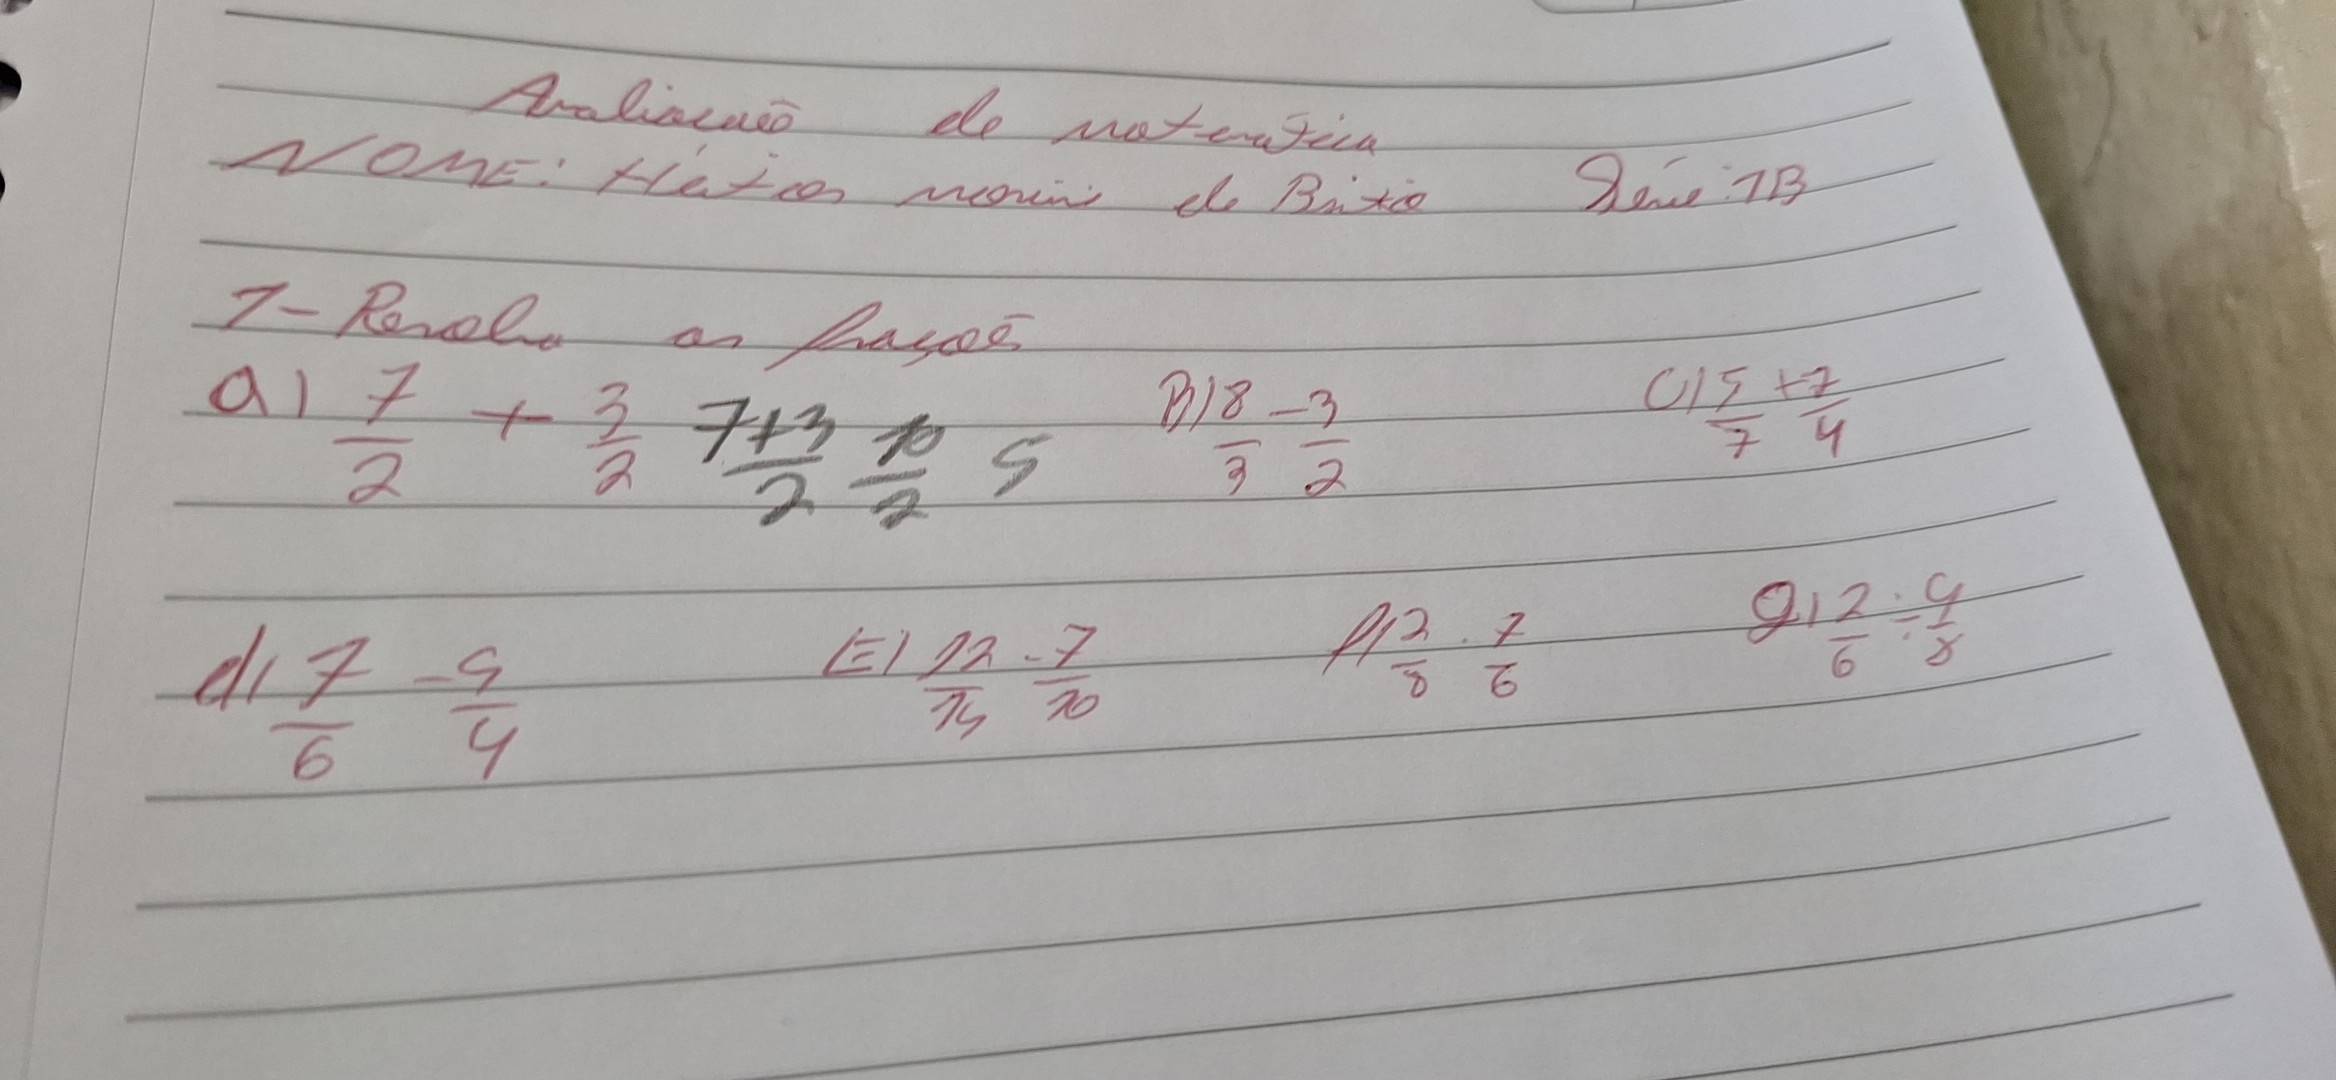 Avaliação de matematica
NOME: Heitor morini de Brito Série: 7B
1- Resolva as frações
a) 7/2 + 3/2 7+3/2 10/2 5 B) 8/3 - 3/2 C) 5/7 + 7/4
d) 7/6 - 5/4 E) 12/15 - 7/10 f) 2/8 . 7/6 g) 2/6 ÷ 4/8